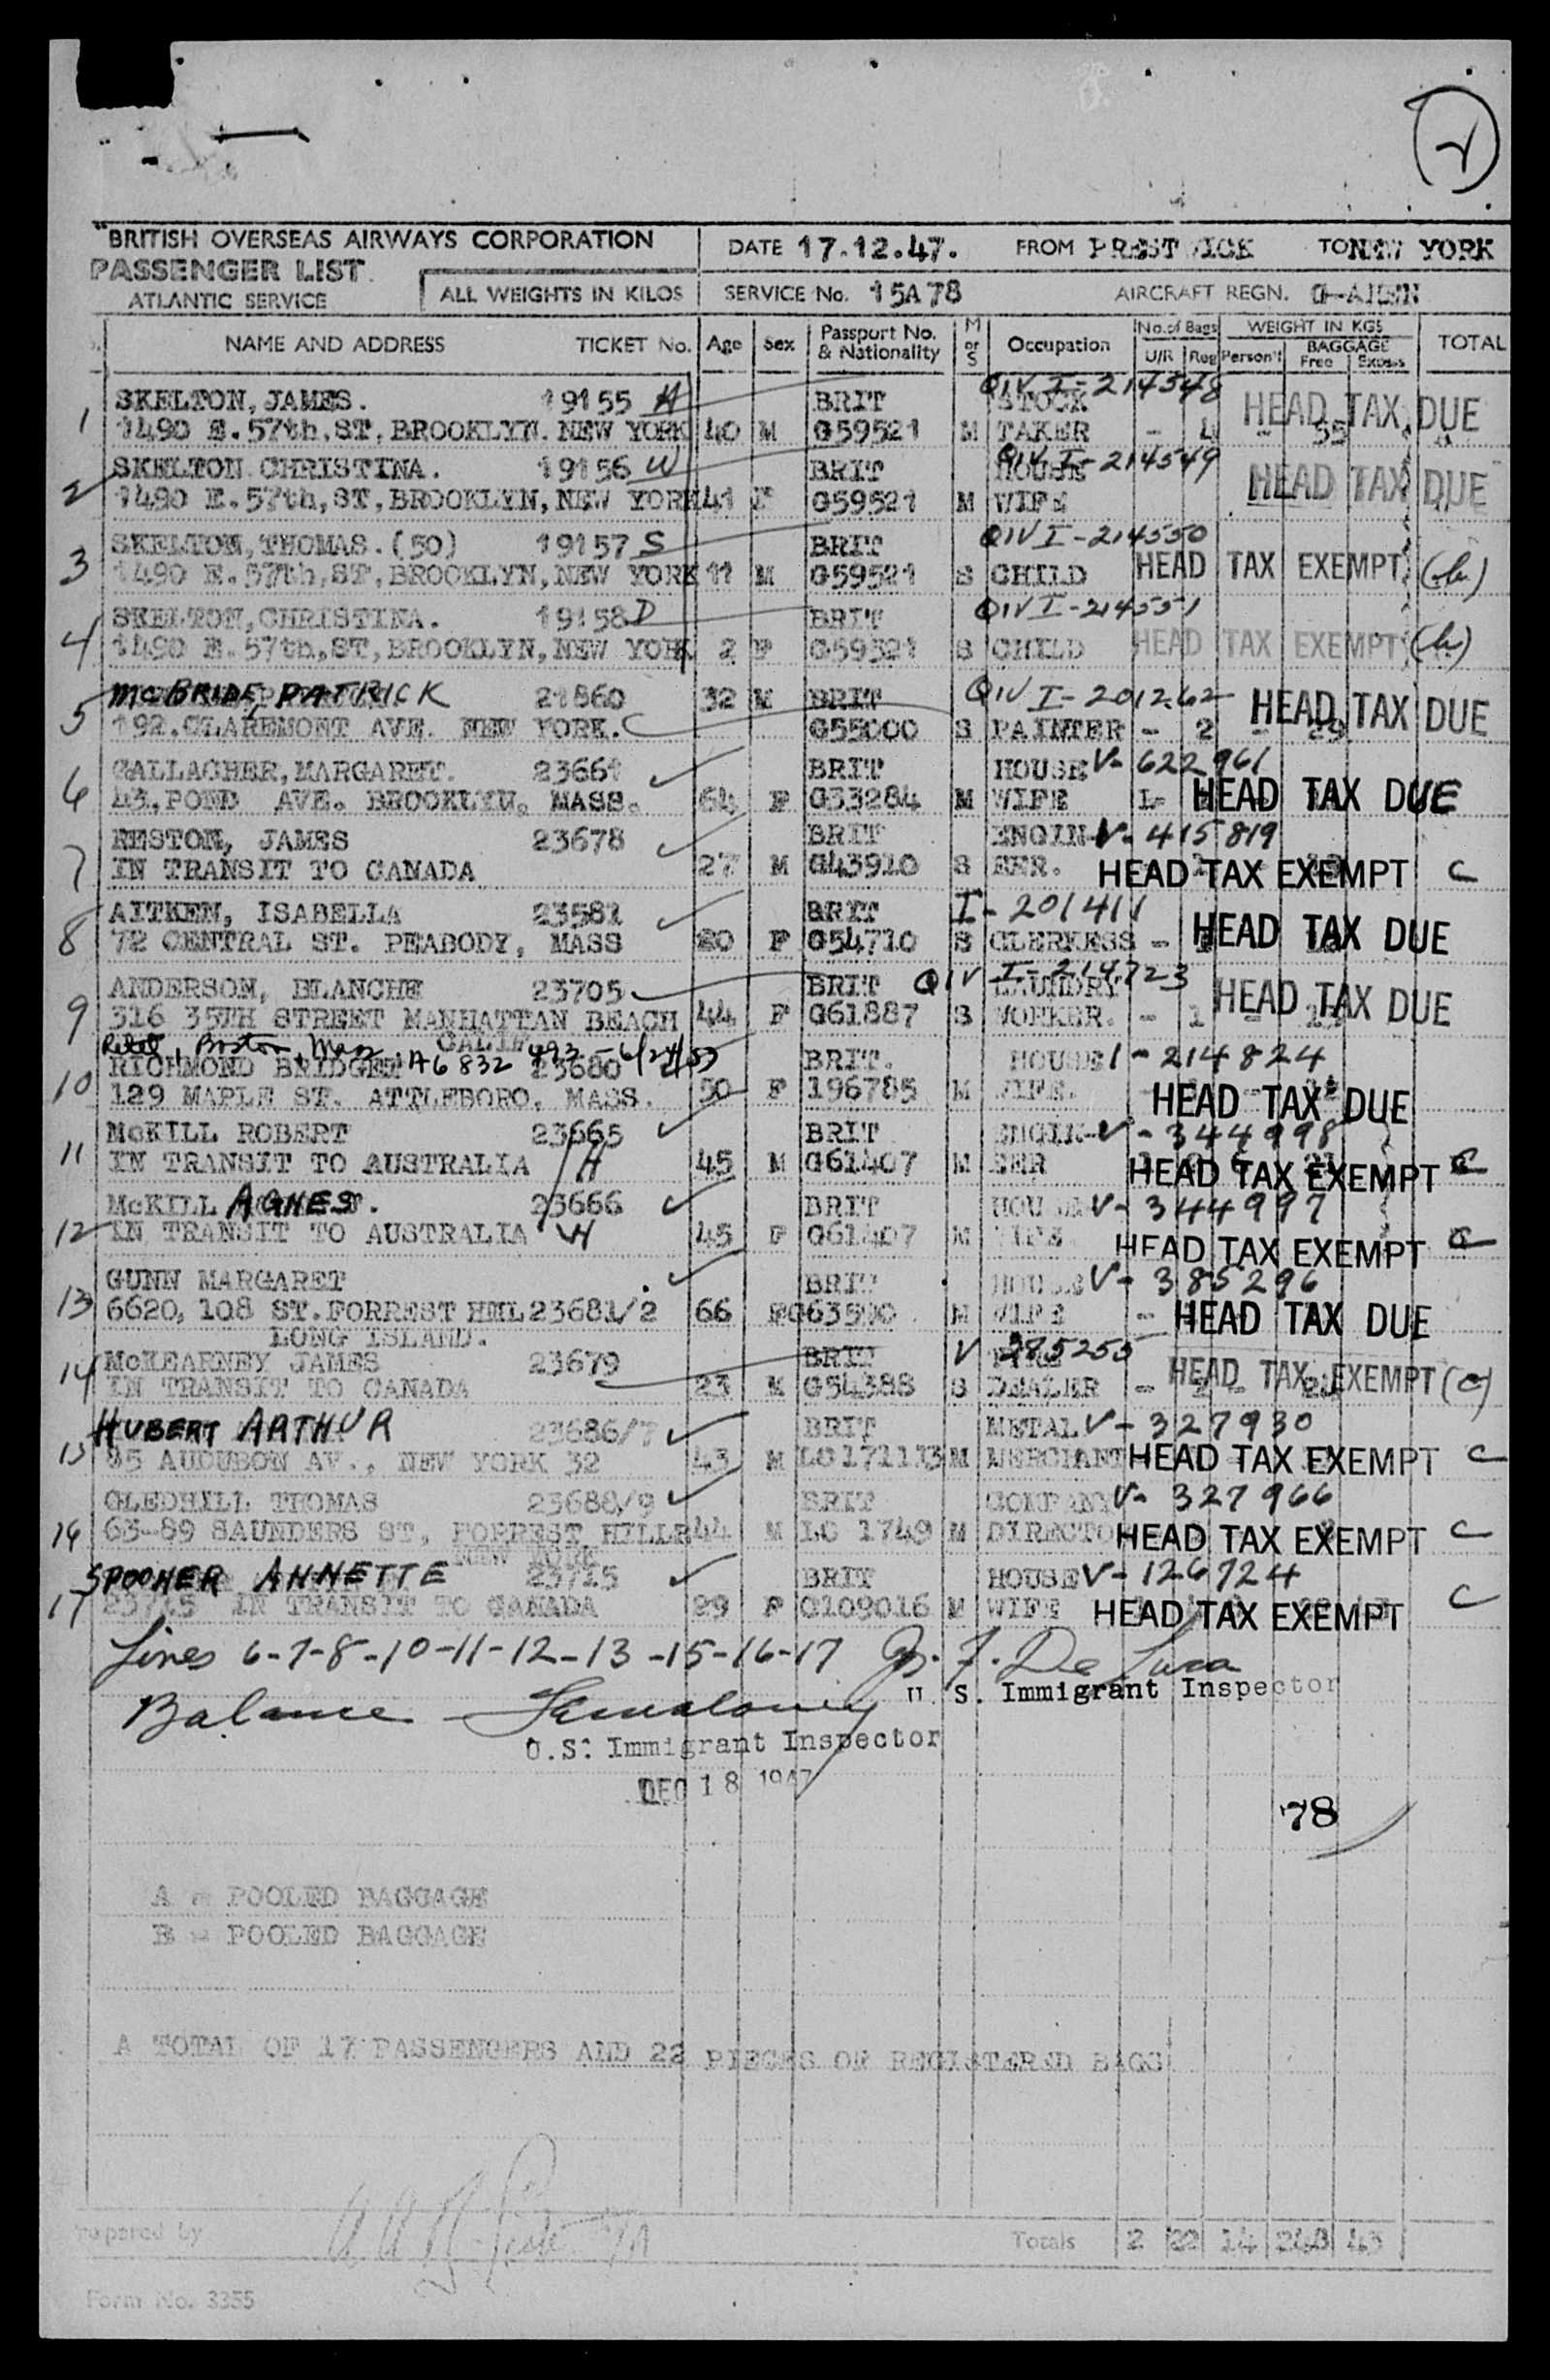 2
BRITISH OVERSEAS AIRWAYS CORPORATION
PASSENGER LIST
ATLANTIC SERVICE
ALL WEIGHTS IN KILOS
DATE 17.12.47. FROM PRESTWICK TO NEW YORK
SERVICE No. 15A78 AIRCRAFT REGN.
NAME AND ADDRESS TICKET No. Age Sex Passport No. & Nationality M or S Occupation No. of Bags U/R Reg WEIGHT IN KGS Person'l BAGGAGE Free Excess TOTAL
QIV I-214548
SKELTON, JAMES. 19155 H BRIT STOCK HEAD TAX DUE
1 1490 E. 57th. ST, BROOKLYN. NEW YORK 40 M G59521 M TAKER - 4 - 55
QIV I-214549
SKELTON CHRISTINA. 19156 W BRIT HOUSE HEAD TAX DUE
2 1490 E. 57th, ST, BROOKLYN, NEW YORK 41 F G59521 M WIFE
QIV I-214550
SKELTON, THOMAS. (50) 19157 S BRIT
3 1490 E. 57th, ST, BROOKLYN, NEW YORK 11 M G59521 S CHILD HEAD TAX EXEMPT (h)
QIV I-214551
SKELTON, CHRISTINA. 19158 D BRIT
4 1490 E. 57th, ST, BROOKLYN, NEW YORK 2 F G59521 S CHILD HEAD TAX EXEMPT (h)
McBRIDE, PATRICK 21860 32 M BRIT QIV I-201262 HEAD TAX DUE
5 192. CLAREMONT AVE. NEW YORK. G55000 S PAINTER - 2 - 29
GALLAGHER, MARGARET. 23661 BRIT HOUSE V-622961
6 43, POND AVE. BROOKLYN, MASS. 64 F G33284 M WIFE HEAD TAX DUE
RESTON, JAMES 23678 BRIT ENGIN- V-415819
7 IN TRANSIT TO CANADA 27 M G43910 S EER. HEAD TAX EXEMPT C
AITKEN, ISABELLA 23581 BRIT I-201411
8 72 CENTRAL ST. PEABODY, MASS 20 F G54710 S CLERKESS - HEAD TAX DUE
ANDERSON, BLANCHE 23705 BRIT QIV I-214723 LAUNDRY HEAD TAX DUE
9 316 35TH STREET MANHATTAN BEACH 44 F G61887 S WORKER. - 1
CALIF
Boston, Mass, A6 832 493 - 6/24/53
RICHMOND BRIDGET 23680 BRIT. HOUSE I-214824
10 129 MAPLE ST. ATTLEBORO, MASS. 50 F 196785 M WIFE. HEAD TAX DUE
McKILL ROBERT 23665 BRIT ENGIN- V-344998
11 IN TRANSIT TO AUSTRALIA H 45 M G61407 M EER HEAD TAX EXEMPT C
McKILL AGNES. 23666 BRIT HOUSE V-344997
12 IN TRANSIT TO AUSTRALIA W 45 F G61407 M WIFE HEAD TAX EXEMPT C
GUNN MARGARET BRIT HOUSE V-385296
13 6620, 108 ST. FORREST HILL 23681/2 66 F M WIFE - HEAD TAX DUE
LONG ISLAND.
McKEARNEY JAMES 23679 BRIT V 285255
14 IN TRANSIT TO CANADA 23 M G54388 S DEALER - HEAD TAX EXEMPT (c)
HUBERT ARTHUR 23686/7 BRIT METAL V-327930
15 85 AUDUBON AV., NEW YORK 32 43 M LO171113 M MERCHANT HEAD TAX EXEMPT C
GLEDHILL THOMAS 23688/9 BRIT COMPANY V-327966
16 63-89 SAUNDERS ST, FORREST HILLS 44 M LO 1749 M DIRECTO HEAD TAX EXEMPT C
NEW YORK
SPOONER ANNETTE 23715 BRIT HOUSE V-126724
17 23715 IN TRANSIT TO CANADA 29 F C109016 M WIFE HEAD TAX EXEMPT C
Lines 6-7-8-10-11-12-13-15-16-17 J. F. De Luca
U. S. Immigrant Inspector
Balance
U.S. Immigrant Inspector
DEC 18 1947
78
A = POOLED BAGGAGE
B = POOLED BAGGAGE
A TOTAL OF 17 PASSENGERS AND 22 PIECES OF REGISTERED BAGG
Prepared by Totals 2 22 14 248 43
Form No. 3355